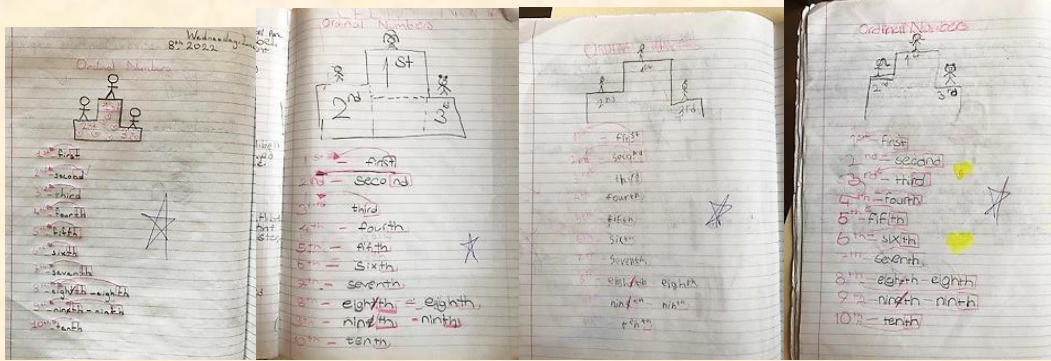 Wednesday, June
8th 2022
Ordinal Numbers
1st
2nd
3rd
1st - first
2nd - second
3rd - third
4th - fourth
5th - fifth
6th - sixth
7th - seventh
8th - eighth - eighth
9th - nineth - ninth
10th - tenth
Ordinal Numbers
1st
2nd
3rd
1st - first
2nd - second
3rd - third
4th - fourth
5th - fifth
6th - sixth
7th - seventh
8th - eighth = eighth
9th - nineth - ninth
10th - tenth
Ordinal Numbers
1st
2nd
3rd
1st - first
2nd - second
third
fourth
fifth
sixth
seventh
eighth eighth
nineth - ninth
tenth
Ordinal Numbers
1st
2nd
3rd
1st - first
2nd - second
3rd - third
4th - fourth
5th - fifth
6th - sixth
7th - seventh
8th - eighth - eighth
9th - nineth - ninth
10th - tenth